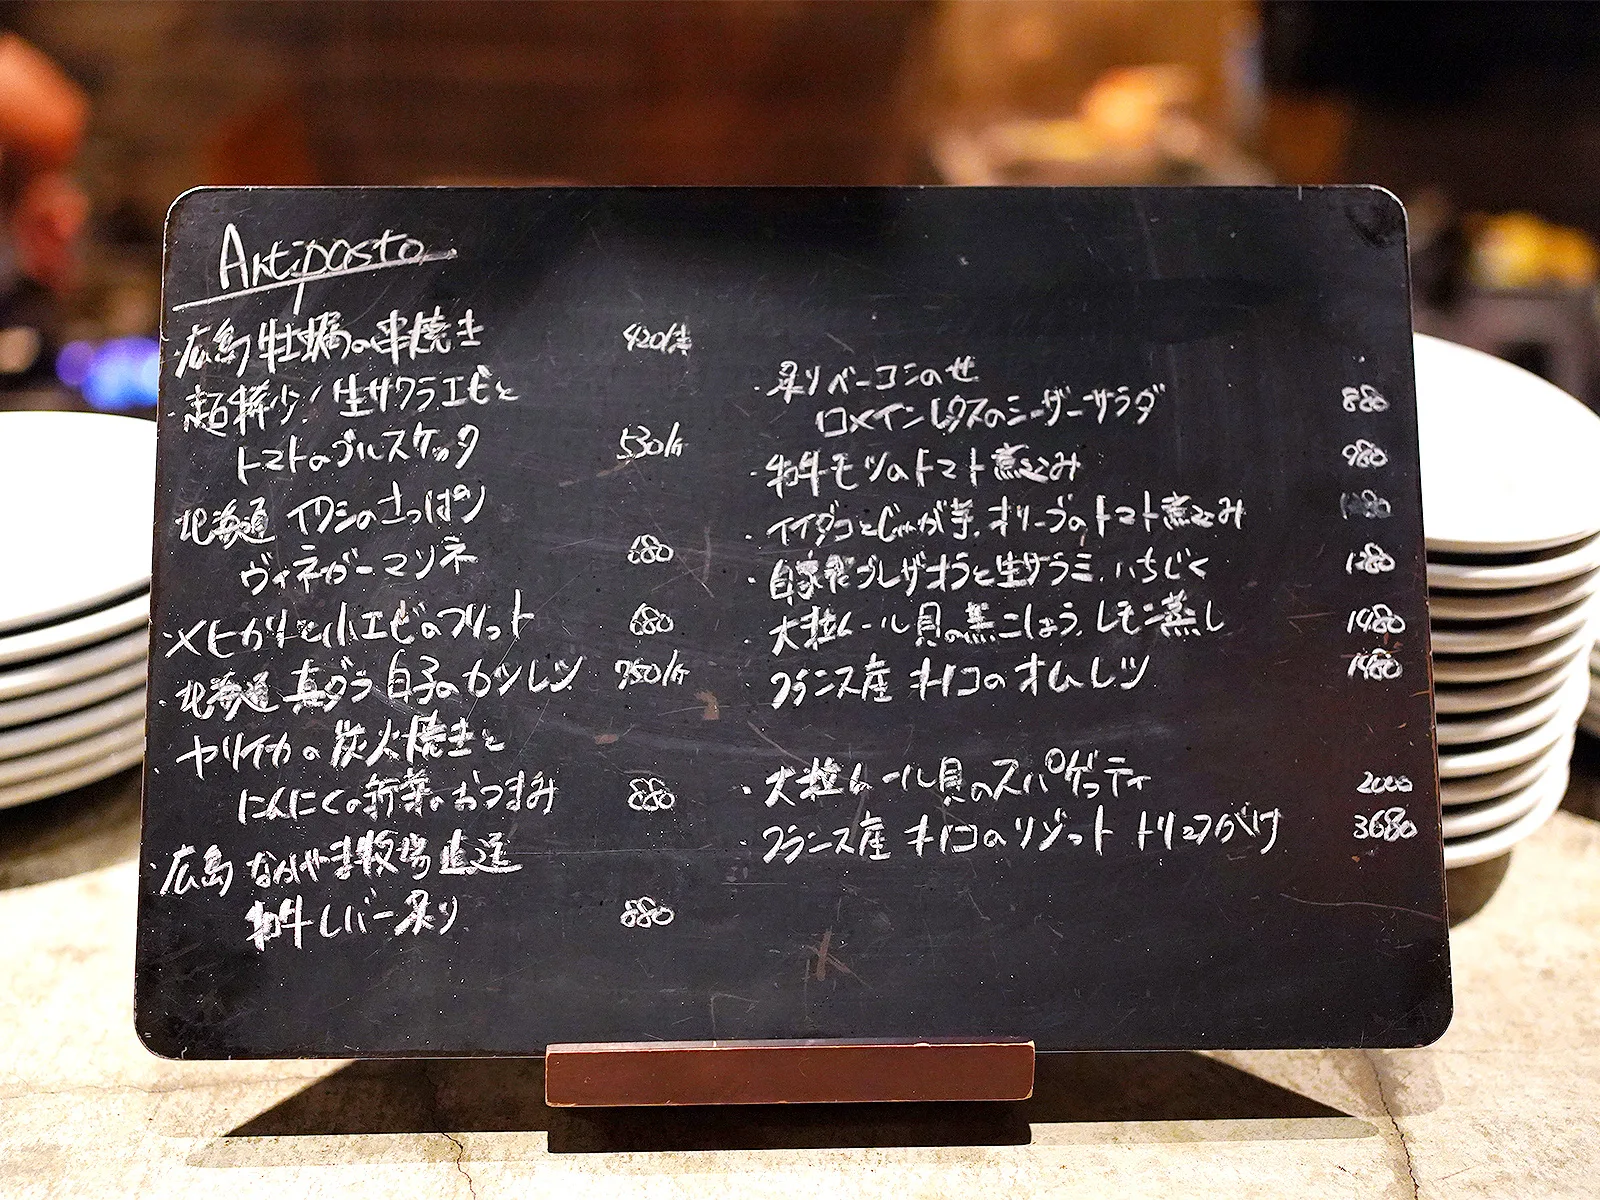 Antipasto
・広島 牡蠣の串焼き 420/本
・超希少！生サクラエビと
トマトのブルスケッタ 530/ケ
・北海道 イワシのさっぱり
ヴィネガーマリネ 680
・メヒカリと小エビのフリット 680
・北海道 真ダラ白子のカツレツ 750/ケ
・ヤリイカの炭火焼きと
にんにくの新葉のおつまみ 880
・広島 なかやま牧場直送
和牛レバー炙り 880
・炙りベーコンのせ
ロメインレタスのシーザーサラダ 880
・和牛モツのトマト煮込み 980
・イイダコとじゃが芋、オリーブのトマト煮込み 1280
・自家製ブレザオラと生サラミ、いちじく 1280
・大粒ムール貝の黒こしょう、レモン蒸し 1980
・フランス産 キノコのオムレツ 1980
・大粒ムール貝のスパゲッティ 2000
・フランス産 キノコのリゾット トリュフがけ 3680